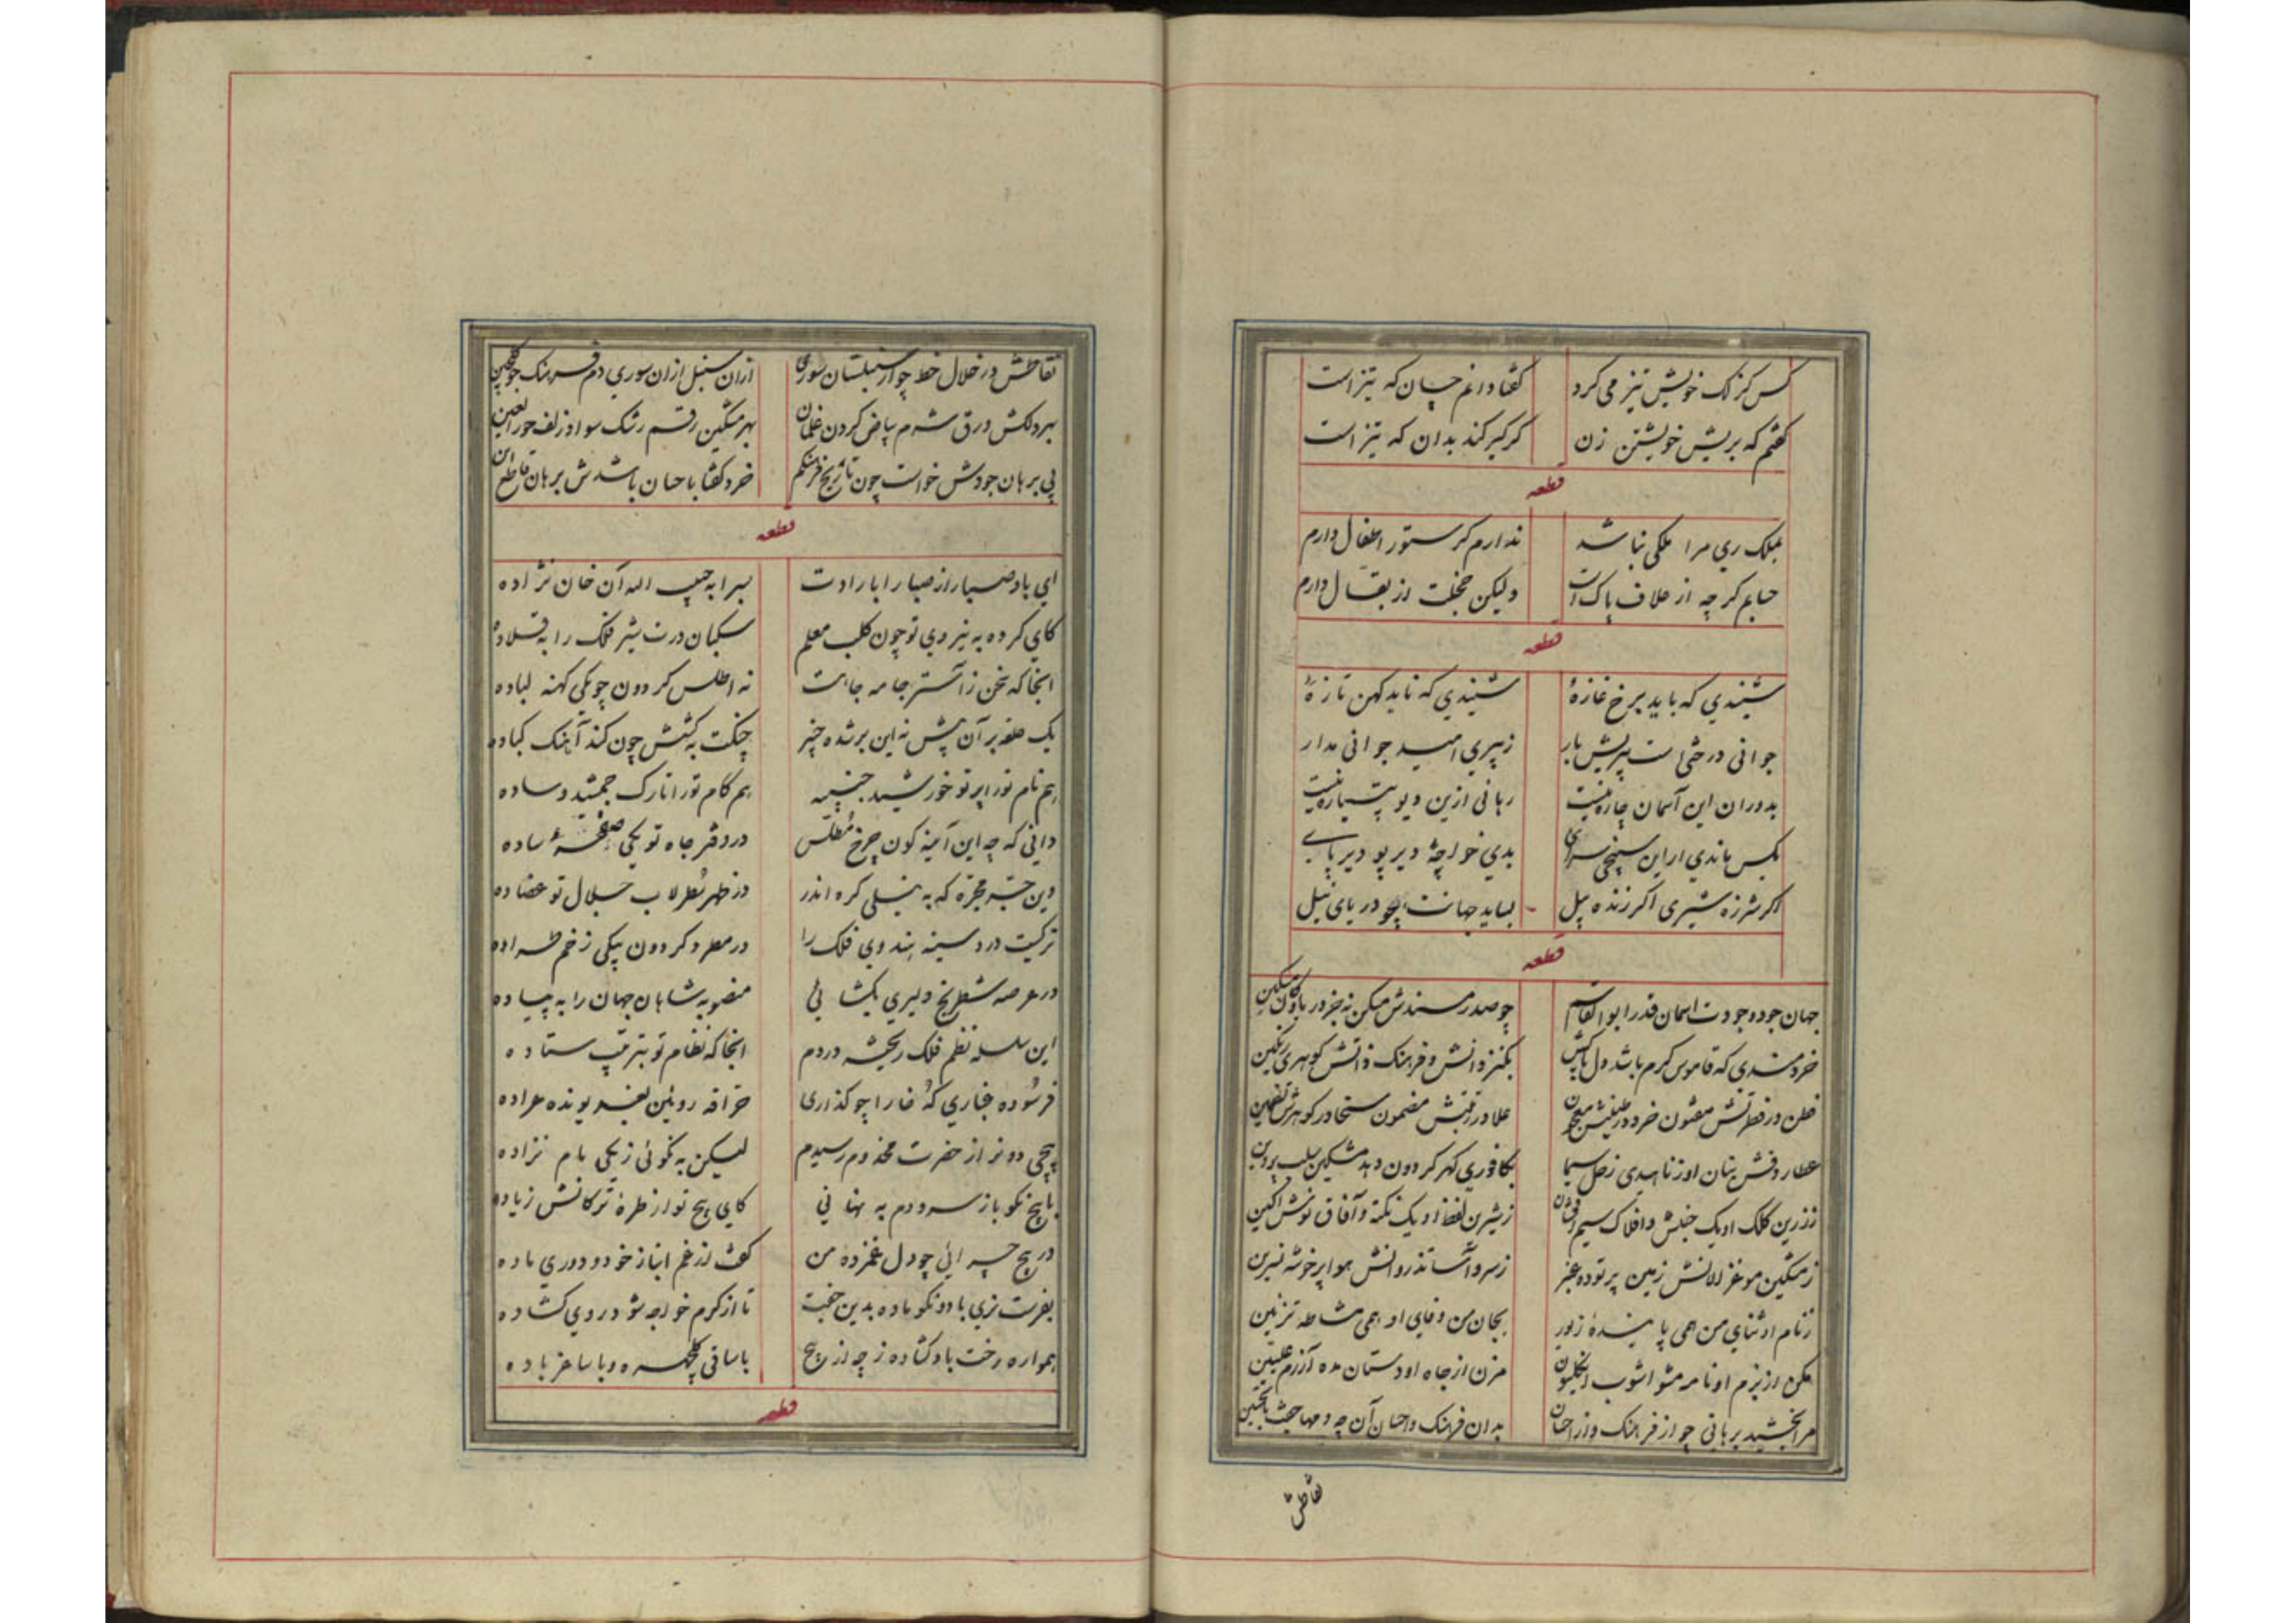 کس کزلک خویش تیز می کرد
گفتا دانم چسان که تیز است
گفتم که بریش خویشتن زن
گر گیر کند بدان که تیز است
قطعه
بملک ری مرا ملکی نباشد
ندارم گر ستور اطفال دارم
حسابم گرچه از علاف پاک است
ولیکن خجلت از بقال دارم
قطعه
شنیدی که باید برخ غازهٔ
شنیدی که ناید کهن تازهٔ
جوانی درختی است پیریش بار
ز پیری امید جوانی مدار
بدوران این آسمان چاره نیست
رهائی ازین دیو پتیاره نیست
بکس ماندی ار این سپنجی سرای
بدی خواجهٔ دیر پو دیر پای
اگر شرزه شیری اگر زنده پیل
بساید جهانت چو دریای نیل
قطعه
جهان جود وجودت اسمان قدر ابوالقاسم
چو صدر مسندش میکن نه جز در
خردمندی که قاموس کرم باشد دل پاکش
بگنز دانش و فرهنگ ذاتش گوهری رنگین
فطن در فطرتش مفتون خرد در طینتش معجون
علا در رتبتش مضمون سخا در گوهرش تضمین
عطارد فش بنان او ز ناهیدی زحل سیما
بکافوری گهر گردون دهد مشکین سلب پروین
ز زرین کلک او یک جنبش و افلاک سیم افشان
ز شیرین لفظ او یک نکته و آفاق نوش آگین
ز مشکین مو غزالانش زمین پر تودهٔ عنبر
ز سرو آسا تذروانش هوا پر خوشهٔ نسرین
ز نام او ثنای من همی پایندهٔ زیور
بجان من وفای او همی مشاطه تزئین
مکن از بزم او نامه مشو آشوب انگلیون
مزن از جاه او دستان مده آزرم علیین
مرا بخشید برهانی چو از فرهنگ و از احسان
بدان فرهنگ و احسان آن چه و مهاجت
نقاطش
نقاطش در خلال خط چو از سنبلستان سوری
ازان سنبل ازان سوری دم فرهنگ جو گلچین
بهر دلکش ورق شرم بیاض گردن غلمان
بهر مشکین رقم رشک سواد زلف حورالعین
پی برهان جودش خواست چون تاریخ فرهنگم
خرد گفتا باحسان باشدش برهان قاطع این
قطعه
ای باد صبا راز صبا را بارادت
بسرا به حبیب الله آن خان نژاده
کای کرده به نیروی تو چون کلب معلم
سگبان درت شیر فلک را به قلاده
آنجا که سخن ز آستر جامه جاهت
نه اطلس گردون چو یکی کهنه لباده
یک حلقه بر آن پشن نه این بر شده چنبر
چنگت به کشش چون کند آهنگ کباده
هم نام تو را پرتو خورشید جنیبه
هم کام تو را تارک جمشید وساده
دانی که چه این آینه گون چرخ مطلس
در دفتر جاه تو یکی صفحهٔ ساده
وین جبهر مجره که به نیلی کره اندر
در ظهر سطرلاب جلال تو عضاده
ترکیت در و سینه هندوی فلک را
در معرد گردون یکی زخم طراده
در عرصه شطرنج دلیری بگشائی
منصوبه شاهان جهان را به پیاده
این سلسله نظم فلک ریخته در دم
آنجا که نظام تو بترتیب ستاده
فرسوده غباری که خارا چو گذاری
حراقه روئین نفس یونده عراده
پیچی دو نر از حضرت مخدوم رسیدم
لیکن به نکوئی ز یکی مام نزاده
با پیچ نکو باز سرودم به نهانی
کای پیچ تو از طرهٔ ترکانش زیاده
در پیچ چرائی چو دل غمزده من
گفت از غم انباز خود و دوری ماده
بفرست نری با دو نکو ماده بدین جفت
تا از کرم خواجه شود روی گشاده
همواره رخت باد گشاده ز چه از پیچ
با ساقی گلچهره و با ساغر باده
قطعه